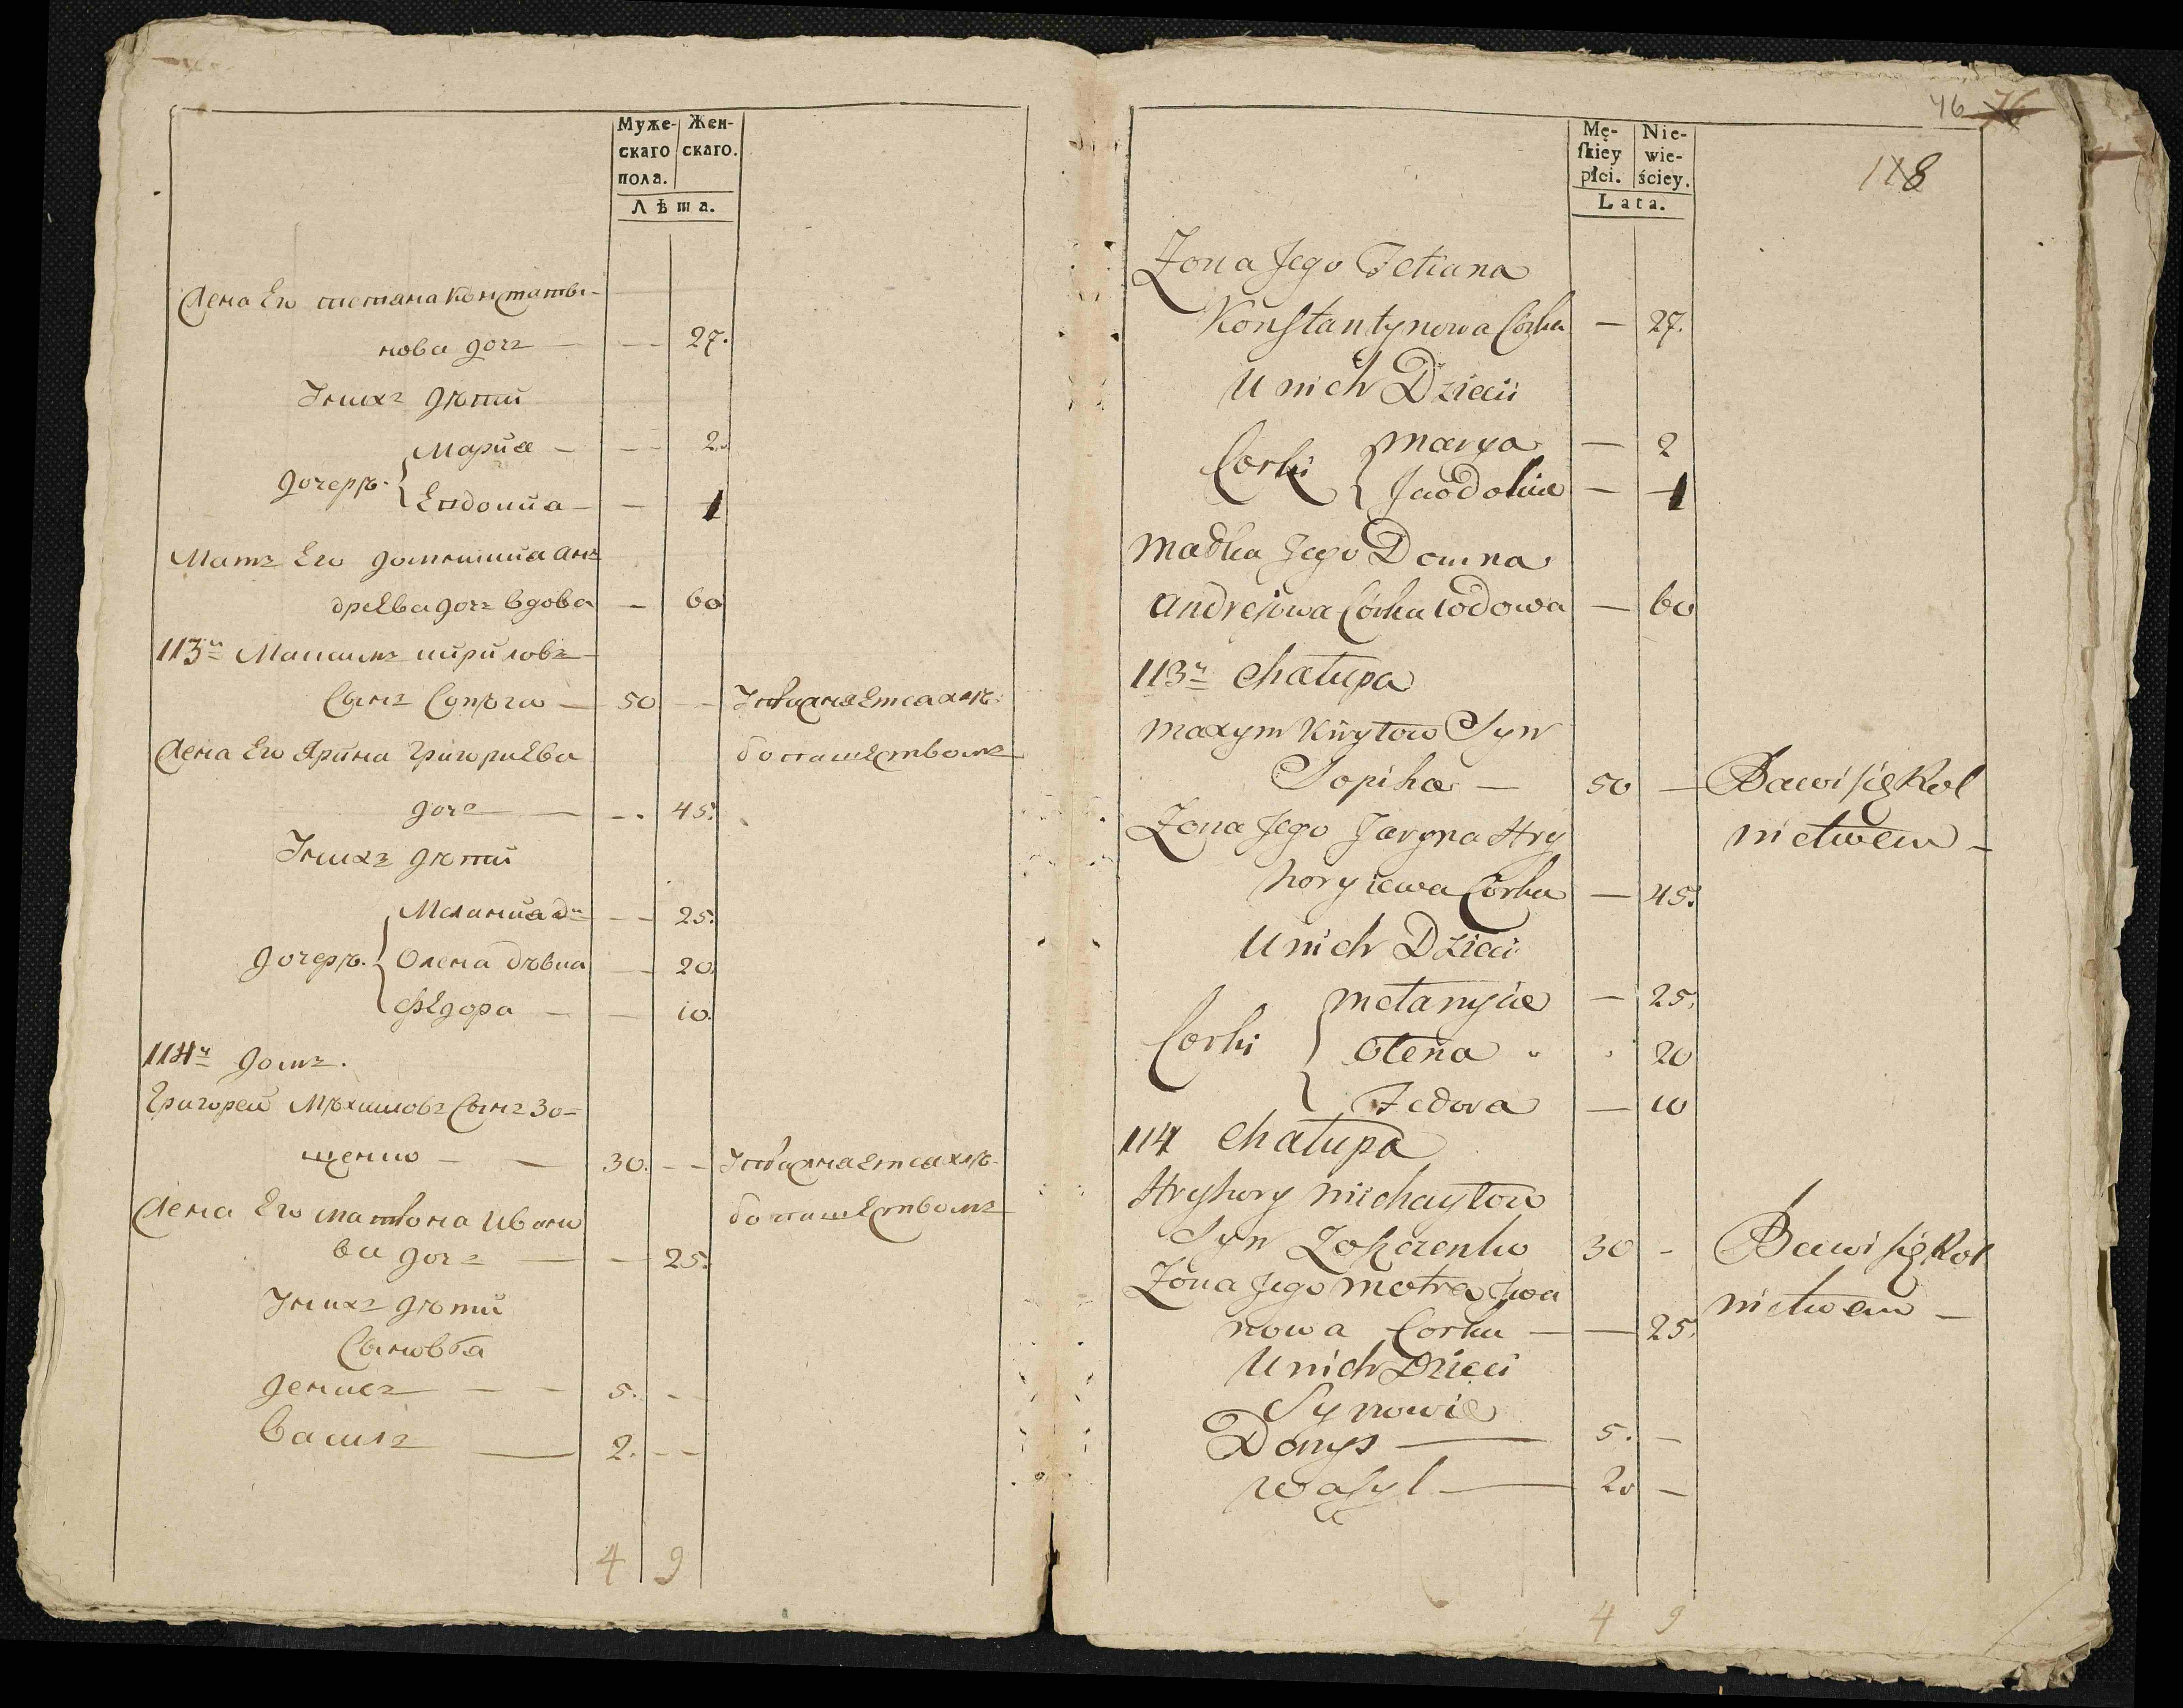 Муже- Жен-
скаго скаго.
пола.
Лѣта.
Жена Его тетяна Констаты-
нова дочъ — — 27.
У нихъ дѣтй
дочерѣ. Марйя — — 2.
Евдокйя — — 1
Матъ Его домникйя Ан-
дрѣева дочъ вдова — 60
113й Максимъ кирйловъ
Сынъ Сопѣга — 50 — — Упражняется хлѣ-
бопашествомъ
Жена Его Ярйна Григориева
дочъ — — 45.
У нихъ дѣтй
дочерѣ. Меланйя д — — 25.
Олена дѣвка — — 20.
Федора — — 10.
114й домъ.
Григорей Мѣхайловъ Сынъ Зо-
щенко — — 30. — — Упражняется хлѣ-
бопашествомъ
Жена Его матрона Ивано
ва дочъ — — 25.
У нихъ дѣтй
Сыновья
Денисъ — — 5. — —
Василъ — 2. — —
4 9
46 76
118
Mę- Nie-
ſkiey wie-
płci. ściey.
Lata.
Zona Jego Tetiana
Konstantynowa Córka — 27.
U nich Dzieci
Corki Marya — 2
Jewdokia — 1
Matka Jego Domna
Andrejowa Córka wdowa — 60
113a Chałupa
Maxym Kiryłow Syn
Sopiha — 50 — Bawi się Rol
nictwem —
Zona Jego Jaryna Hry
horyiewa Córka — 45.
U nich Dzieci
Corki Mełanyia — 25.
Ołena 20
Fedora — 10
114 Chałupa
Hryhory Michayłow
Syn Zoszczenko 30 — Bawi się Rol
nictwem —
Zona Jego Motra Jwa
nowa Corka — — 25.
U nich Dzieci
Synowie
Denys — 5. —
Wasyl — 2. —
4 9